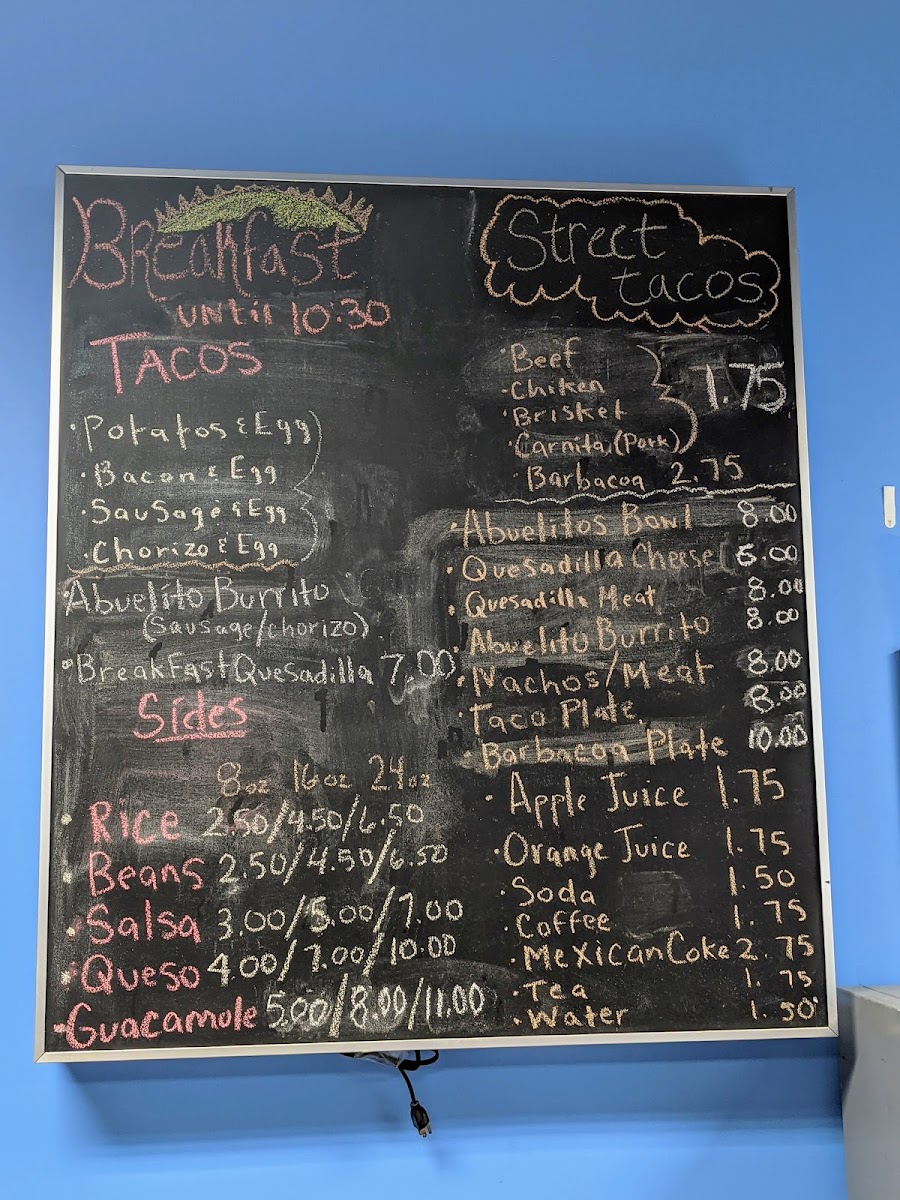 Breakfast
until 10:30
Tacos
• Potatos & Egg
• Bacon & Egg
• Sausage & Egg
• Chorizo & Egg
• Abuelito Burrito
(Sausage/chorizo)
• BreakFast Quesadilla 7.00
Sides
8oz 16oz 24oz
• Rice 2.50/4.50/6.50
• Beans 2.50/4.50/6.50
• Salsa 3.00/5.00/7.00
• Queso 4.00/7.00/10.00
- Guacamole 5.00/8.00/11.00
Street
tacos
• Beef
• Chiken
• Brisket 1.75
• Carnita (Pork)
• Barbacoa 2.75
• Abuelitos Bowl 8.00
• Quesadilla Cheese 6.00
• Quesadilla Meat 8.00
• Abuelito Burrito 8.00
• Nachos/Meat 8.00
• Taco Plate 8.00
• Barbacoa Plate 10.00
• Apple Juice 1.75
• Orange Juice 1.75
• Soda 1.50
• Coffee 1.75
• Mexican Coke 2.75
• Tea 1.75
• Water 1.50